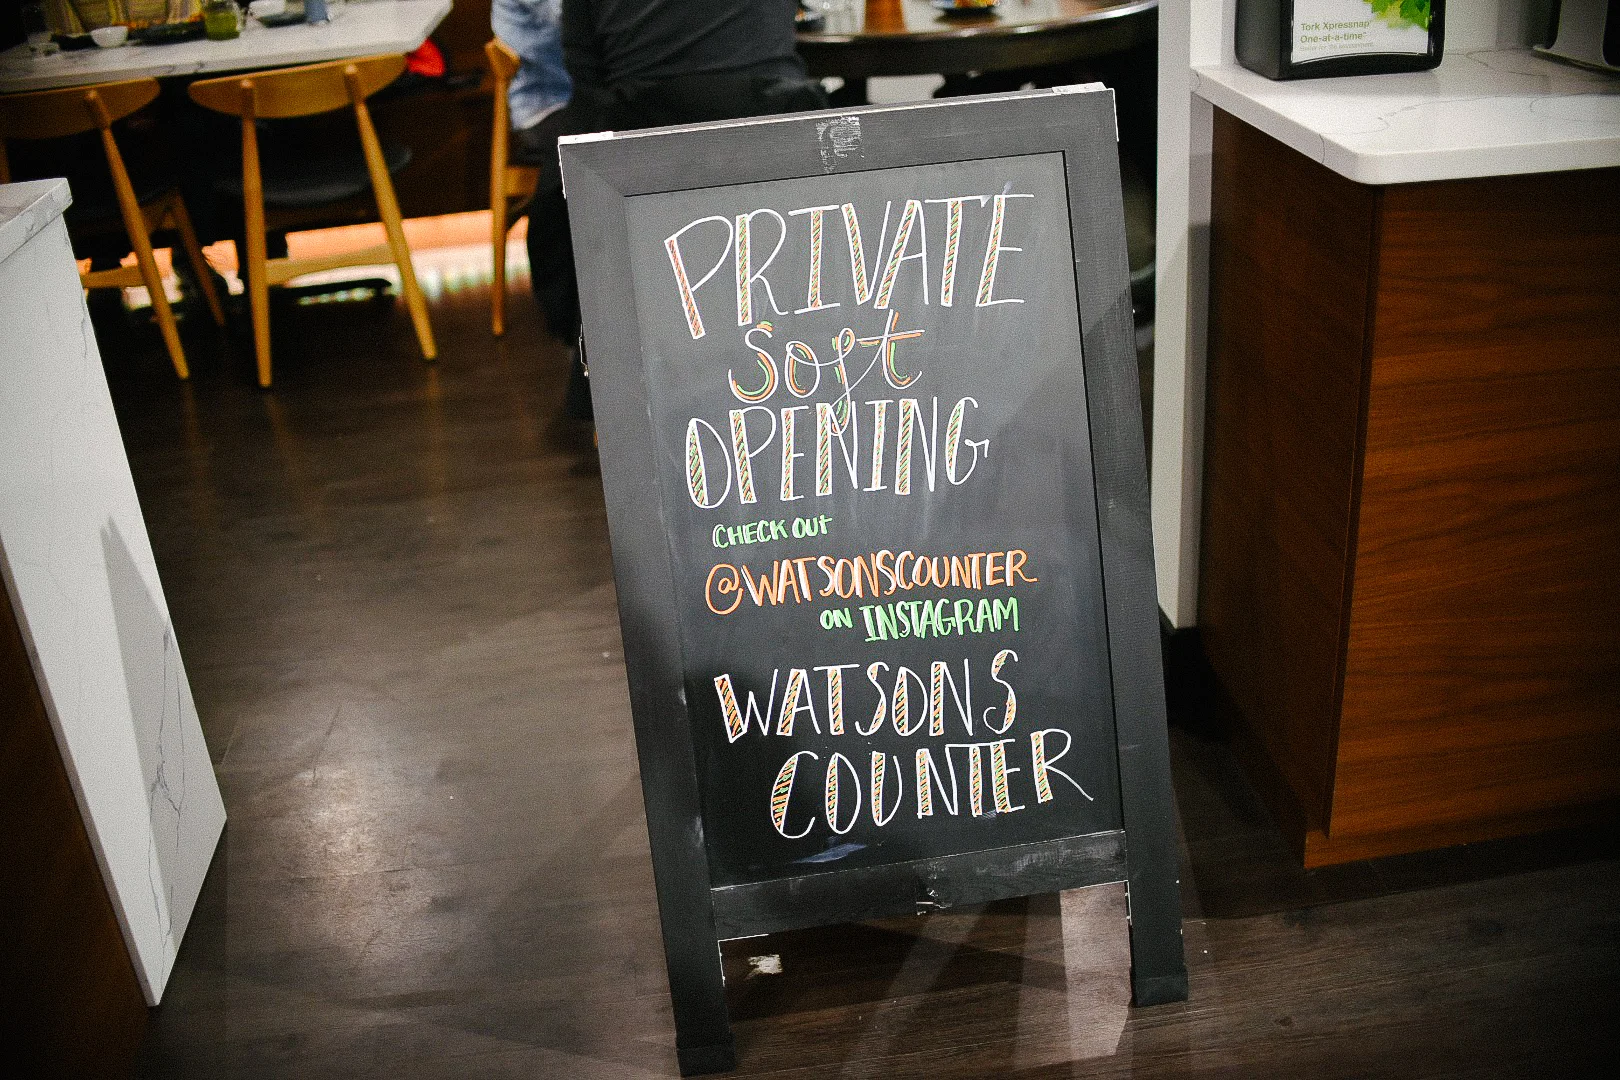 Tork Xpressnap®
One-at-a-time™
PRIVATE
Soft
OPENING
CHECK OUT
@WATSONSCOUNTER
ON INSTAGRAM
WATSONS
COUNTER